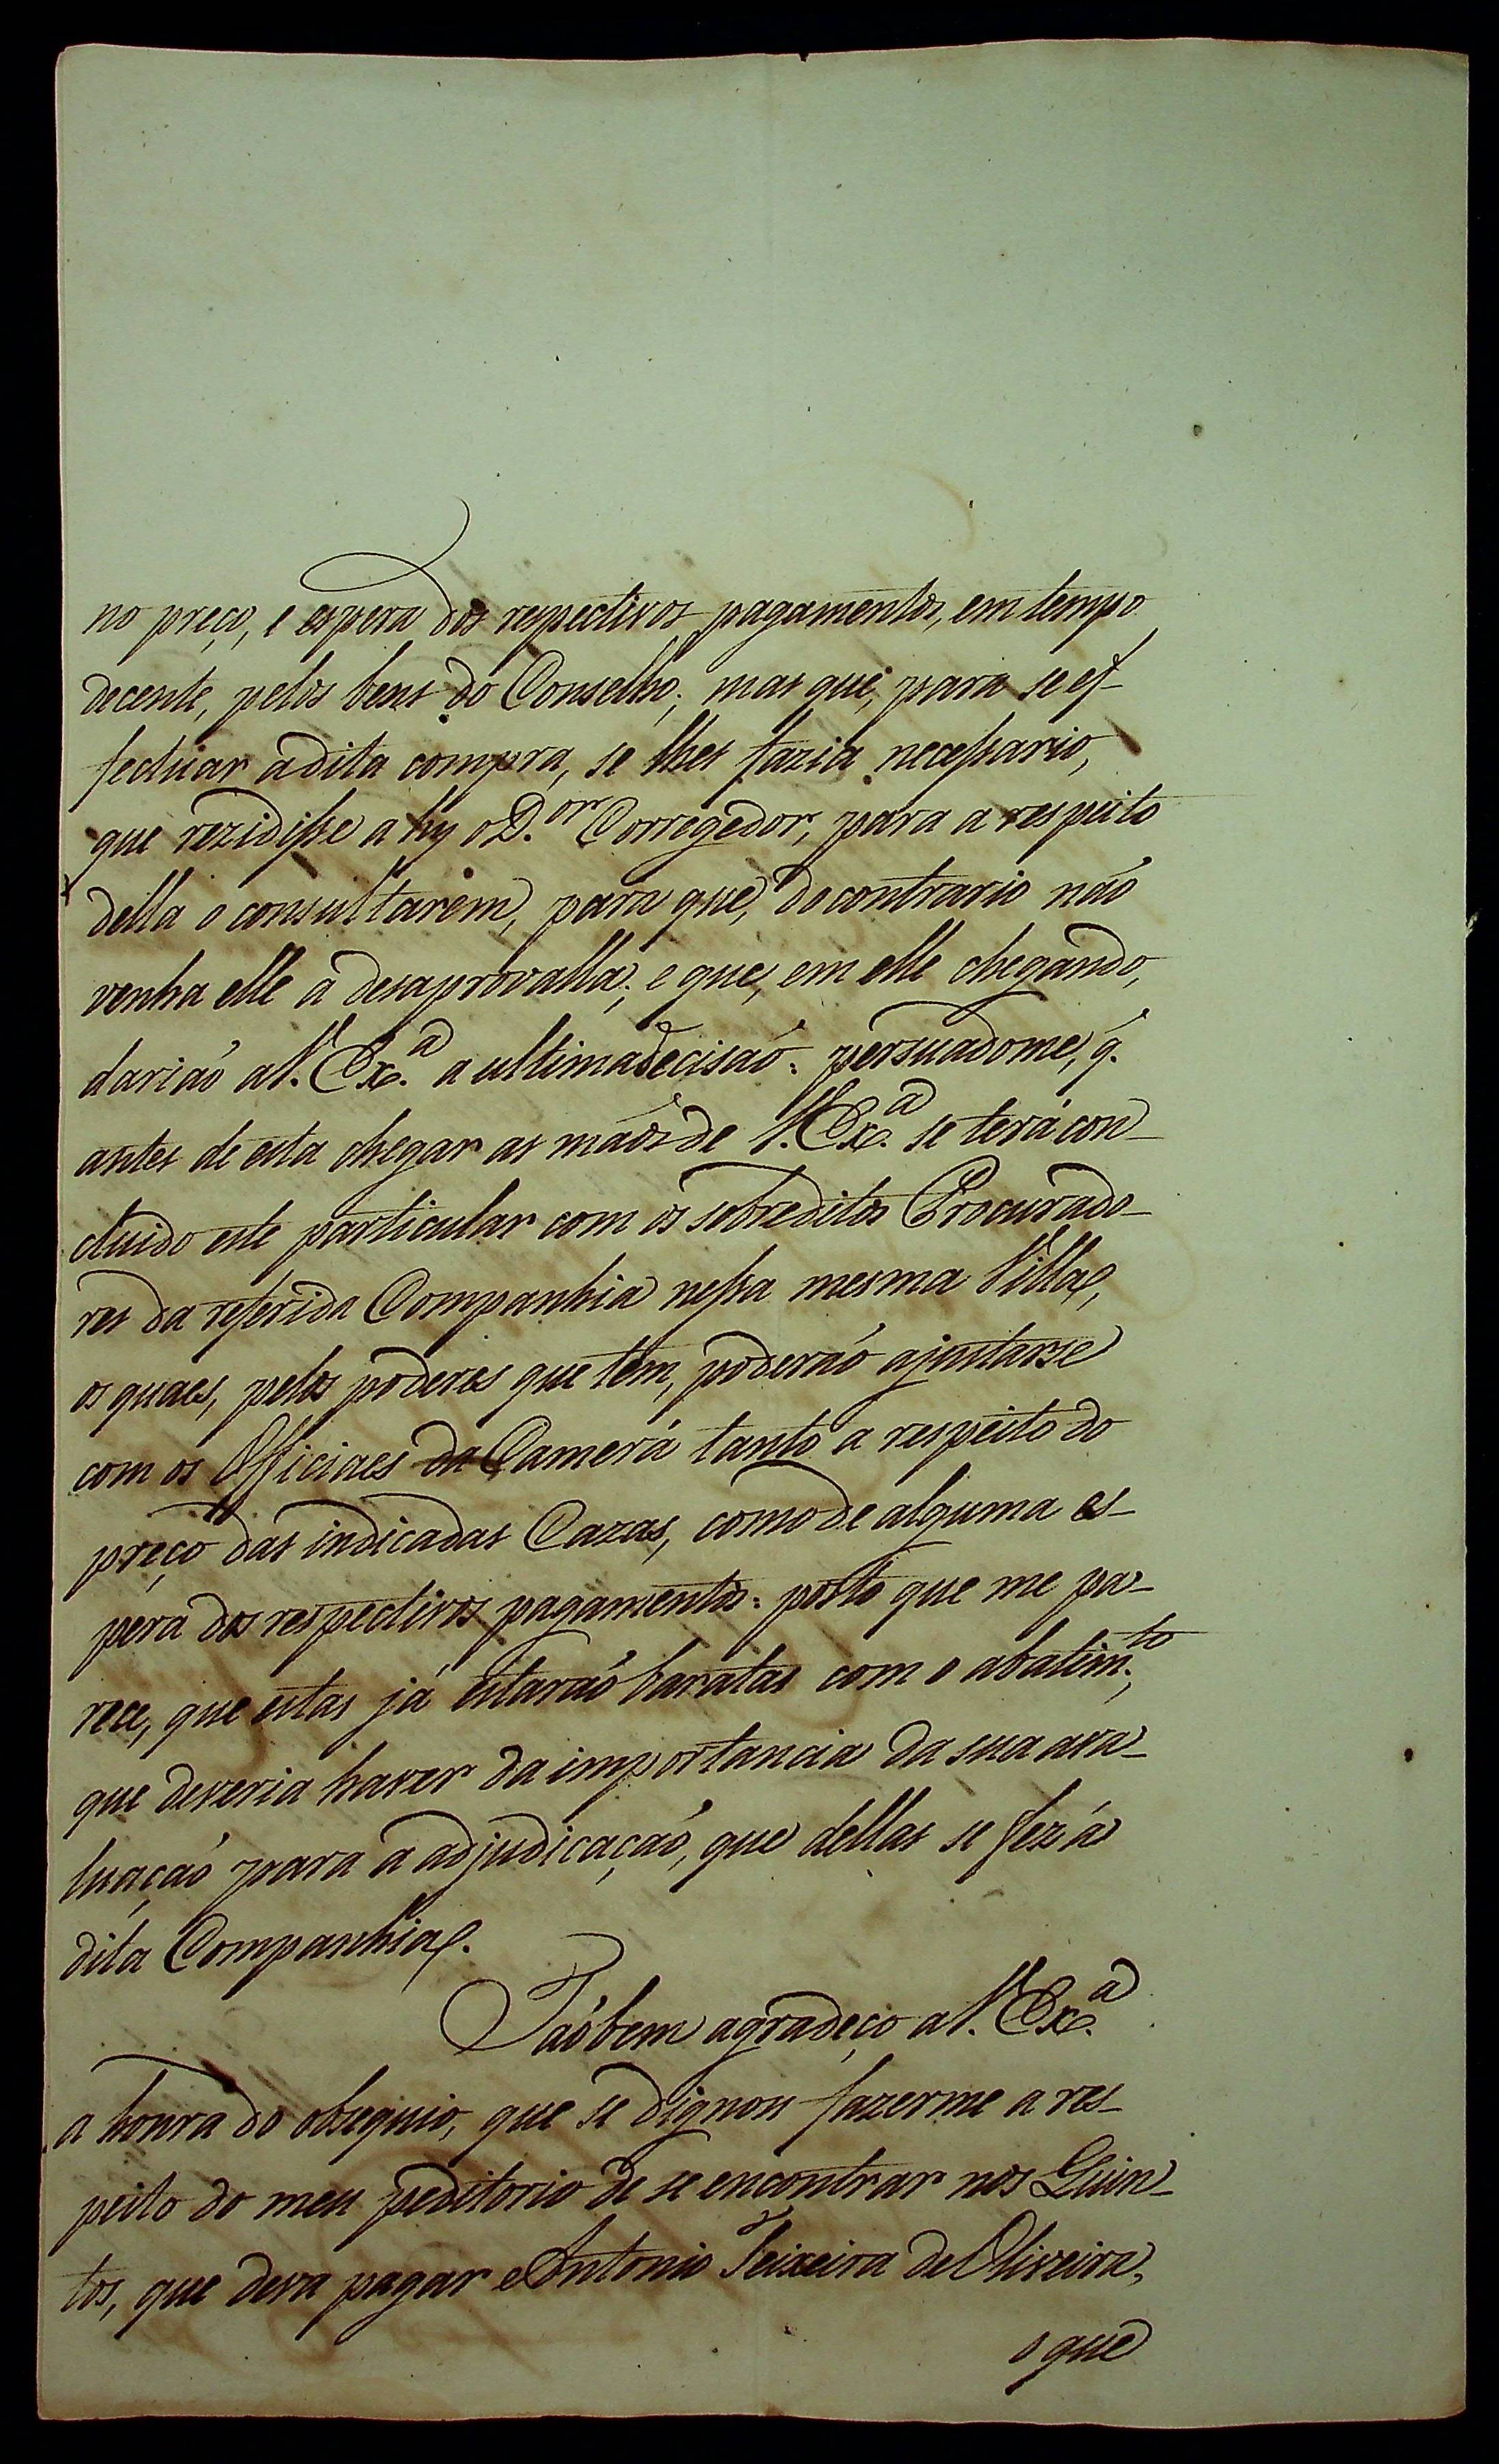 no preço, e espera dos respectivos pagamentos, em tempo
decente, pelos bens do Conselho; mas que, para se ef-
fectuar a dita compra, se lhes fazia necessario,
que rezidisse a hy o D.or Corregedor, para a respeito
della o consultarem, para que, do contrario não
venha elle a desaprovalla; e que, em elle chegando,
dariaó a V. Ex.a a ultima decisaó: persuadome, q̃.
antes de esta chegar as maõs de V. Ex.a se terá con-
cluido este particular com os sobreditos Procurado-
res da referida Companhia nessa mesma Villa,
os quaes, pelos poderes que tem, poderaó ajustarse
com os Officiaes da Camera tanto a respeito do
preço das indicadas Cazas, como de alguma es-
pera dos respectivos pagamentos: posto que me pa-
rece, que estas já estaraó baratas com o abatim.to,
que deveria haver da importancia da sua ava-
luaçaó para a adjudicaçaó, que dellas se fez á
dita Companhia.
Taóbem agradeço a V. Ex.a
a honra do obsequio, que se dignou fazerme a res-
peito do meu peditorio de se encontrar nos Quin-
tos, que deva pagar Antonio Teixeira de Oliveira,
o que